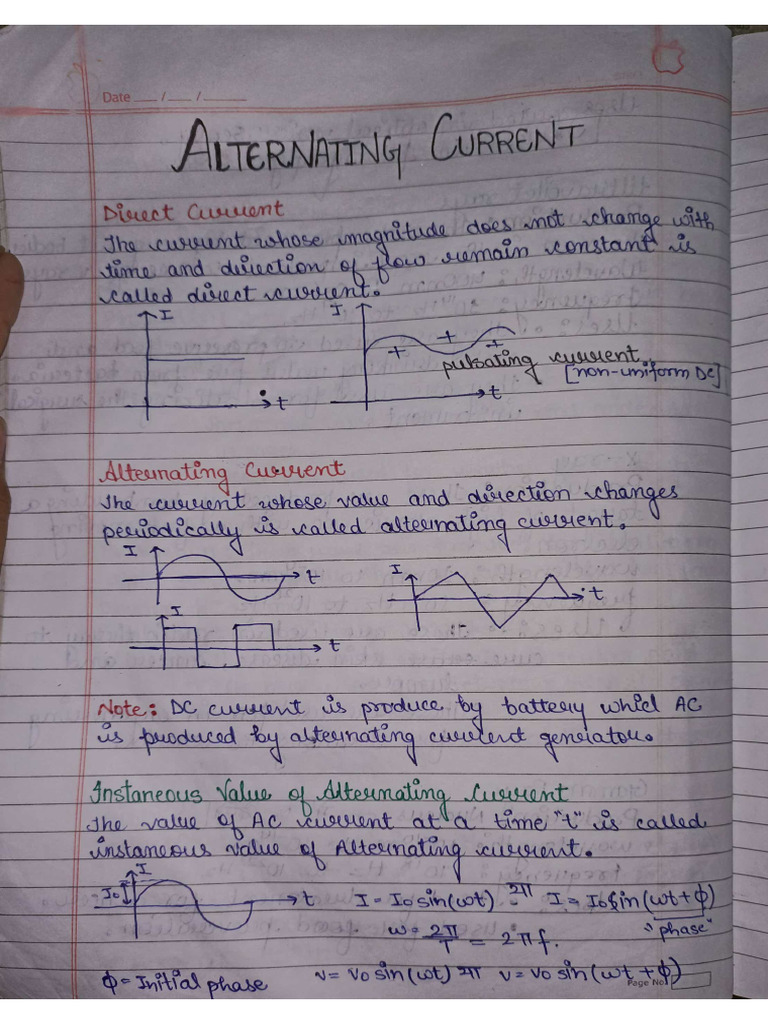 Date ___ / ___ / _____
ALTERNATING CURRENT
Direct Current
The current whose magnitude does not change with
time and direction of flow remain constant is
called direct current.
I
I
+ + +
pulsating current.
[non-uniform DC]
t
t
Alternating Current
The current whose value and direction changes
periodically is called alternating current.
I
t
I
t
I
t
Note: DC current is produce by battery whicl AC
is produced by alternating current generator.
Instaneous Value of Alternating Current
The value of AC current at a time "t" is called
instaneous value of Alternating current.
I
I₀
t
I = I₀ sin(ωt) या I = I₀ sin(ωt + φ)
"phase"
ω = 2π/T = 2πf.
φ = Initial phase
v = v₀ sin(ωt) या v = v₀ sin(ωt + φ)
Page No.